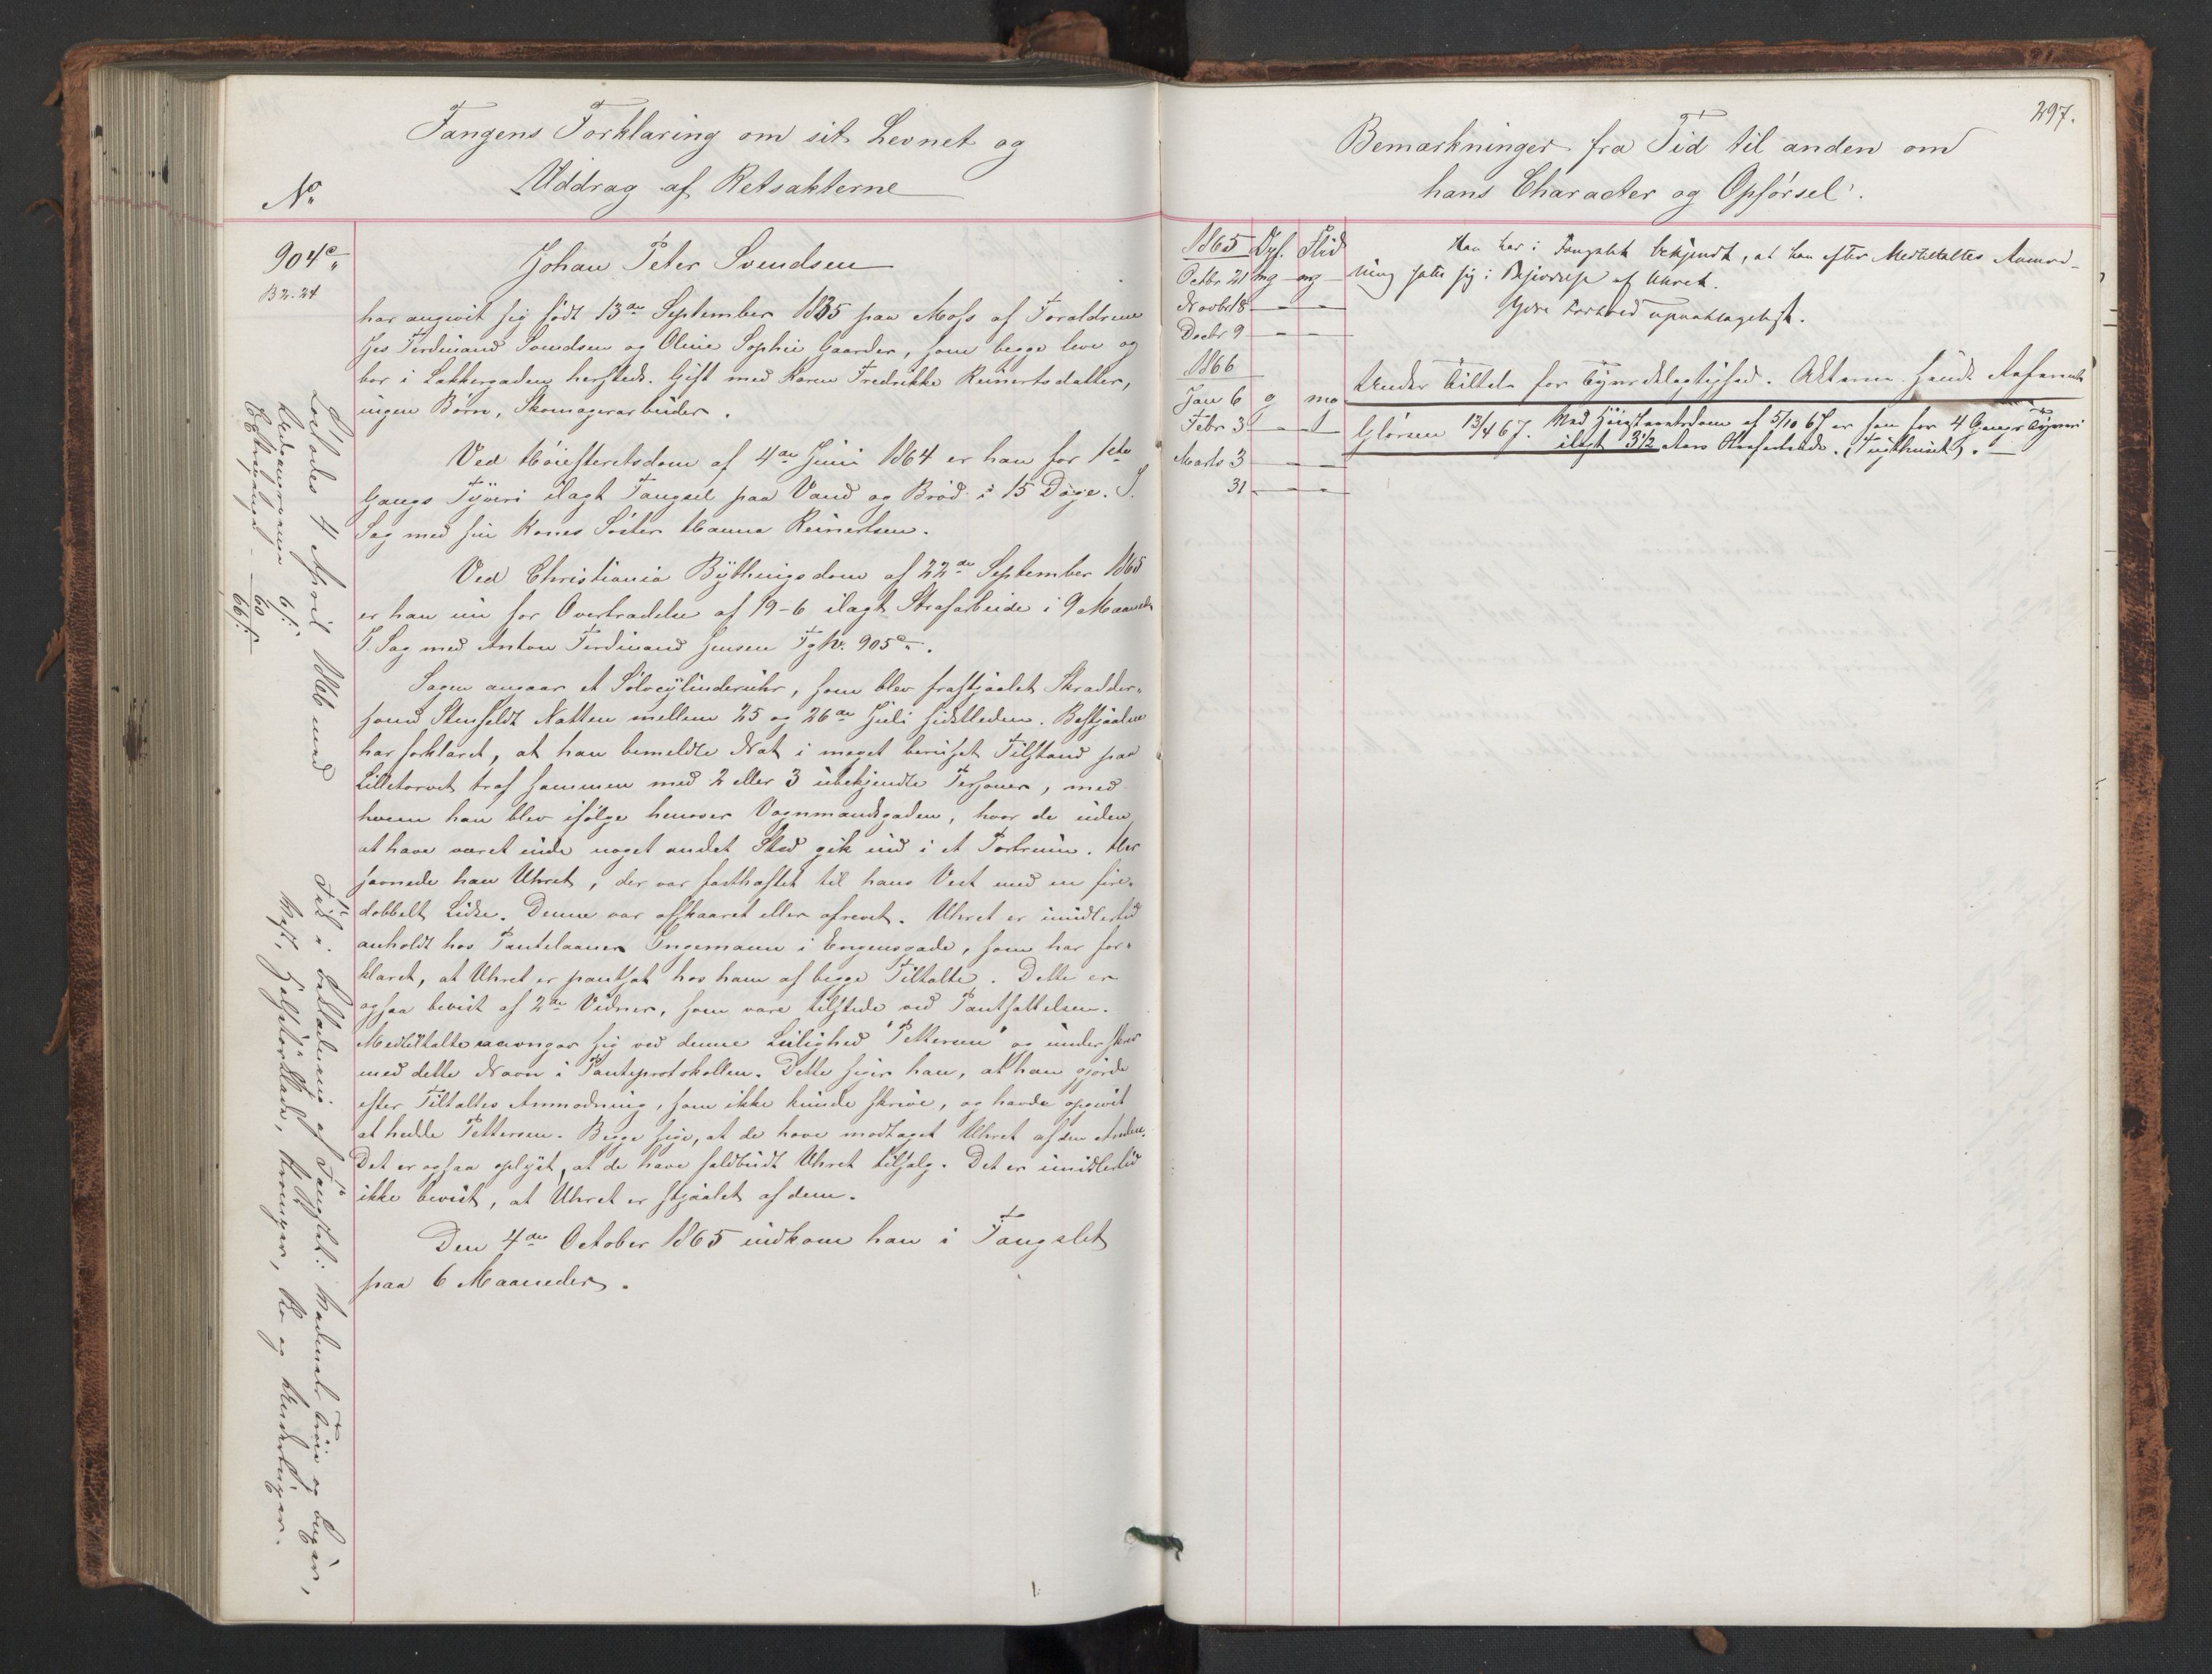 Fangens Forklaring om sit Levnet og
Uddrag af Retsakterne
No
904c
B 2. 24
Johan Peter Svendsen
har angivit sig født 13de September 1835 paa Moss af Forældrene
Jes Ferdinand Svendsen og Oline Sophie Gaarder, som begge leve og
bor i Lakkergaden hersteds. Gift med Karen Fredrikke Reinertsdatter,
ingen Børn, Skomagerarbeider.
Ved Høiesteretsdom af 4de Juni 1864 er han for 1ste
Gangs Tyveri ilagt Fængsel paa Vand og Brød i 15 Døge. I
Sag med sin Kones Søster Hanna Reinertsen.
Ved Christiania Bythingsdom af 22de September 1865
er han nu for Overtrædelse af 19-6 ilagt Strafarbeide i 9 Maaneder
I Sag med Anton Ferdinand Jensen Fg No. 905c.
Sagen angaar et Sølvcylinderuhr, som blev frastjaalet Skrædder-
svend Stenfeldt Natten mellem 25 og 26de Juli sidstleden. Bestjaalne
har forklaret, at han bemeldte Nat i meget beruset Tilstand paa
Lilletorvet traf sammen med 2 eller 3 ubekjendte Personer, med
hvem han blev ifølge henover Vognmandsgaden, hvor de uden
at have været inde noget andet Sted gik ind i et Portrum. Her
savnede han Uhret, der var fasthæftet til hans Vest med en fire-
dobbelt Lidse. Denne var afskaaret eller afrevet. Uhret er imidlertid
anholdt hos Pantelaaner Ingemann i Engensgade, som har for-
klaret, at Uhret er pantsat hos ham af begge Tiltalte. Dette er
ogsaa bevist af 2de Vidner, som vare tilstede ved Pantsættelsen.
Medtiltalte sig ved denne Leilighed "Pettersen" og underskrev
med dette Navn i Panteprotokollen. Dette siger han, at han gjorde
efter Tiltaltes Anmodning, som ikke kunde skrive, og havde opgivit
at hedde Pettersen. Begge sige, at de have modtaget Uhret af den Anden.
Det er ogsaa oplyst, at de have faldbudt Uhret tilsalg. Det er imidlertid
ikke bevist, at Uhret er stjaalet af dem.
Den 4de October 1865 indkom han i Fængslet
paa 6 Maaneder.
Løslodes 4 April 1866 med
6 ß
60 ß
66 ß
Fik i af Fængslet: trøie og buxer,
Vest, halstørklæde, Sko og
297.
Bemærkninger fra Tid til anden om
hans Character og Opførsel.
1865 Opf. Flid
Octbr 21 mg mg
Novbr 18 — —
Decbr 9 — —
1866
Jan 6 g mg
Febr 3 — —
Marts 3 — —
31 — —
Han har i Fængslet bekjendt, at han efter Medtiltaltes Anmod-
ning satte sig i Besiddelse af Uhret.
Ydre Forhold upaaklageligt.
Under Tiltale for Tyvsdelagtighed. Akterne sendt
13/4 67. Med Høiesteretsdom af 5/10 67 er han for 4 Gangs Tyveri
ilagt 3½ Aars Strafarbeide. (Tugthuset).